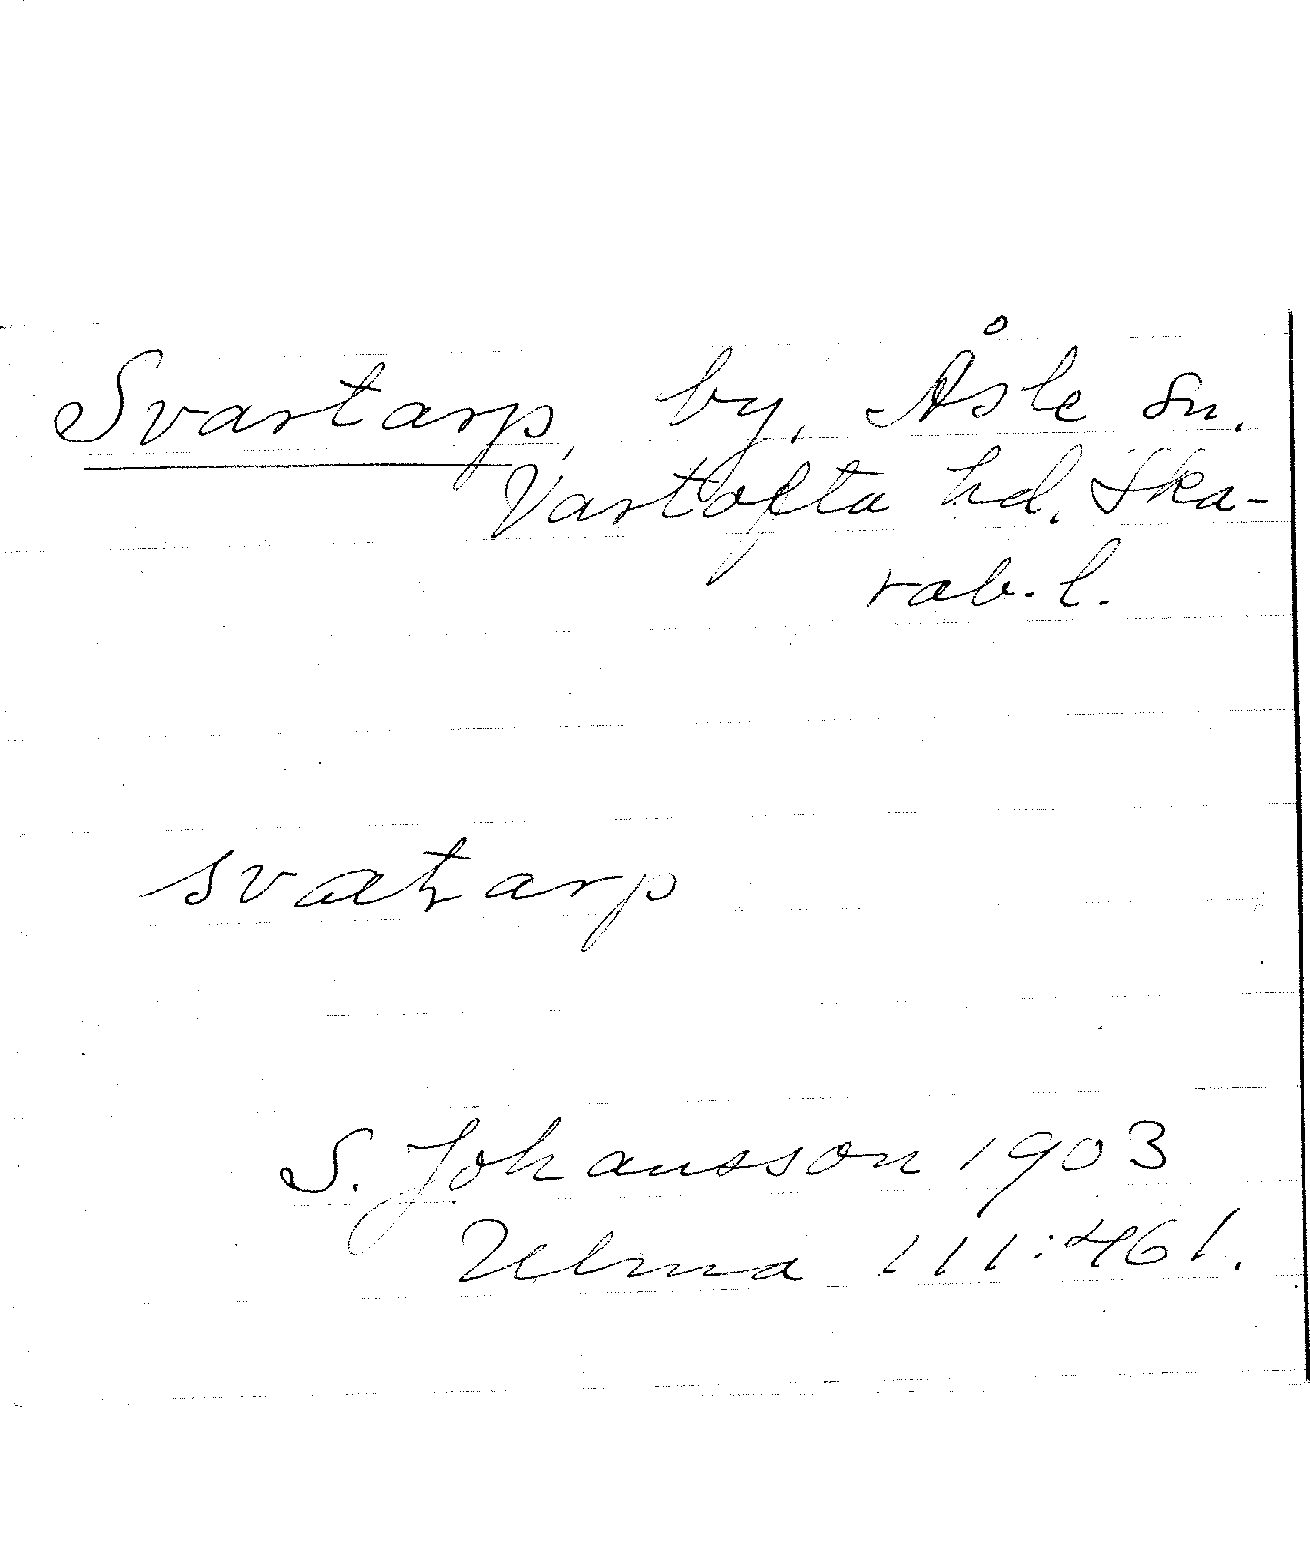 Svartarp, by, Åsle sn,
Vartofta hd, Ska-
rab. l.
svætarp
S. Johansson 1903
Ulma 111:461.